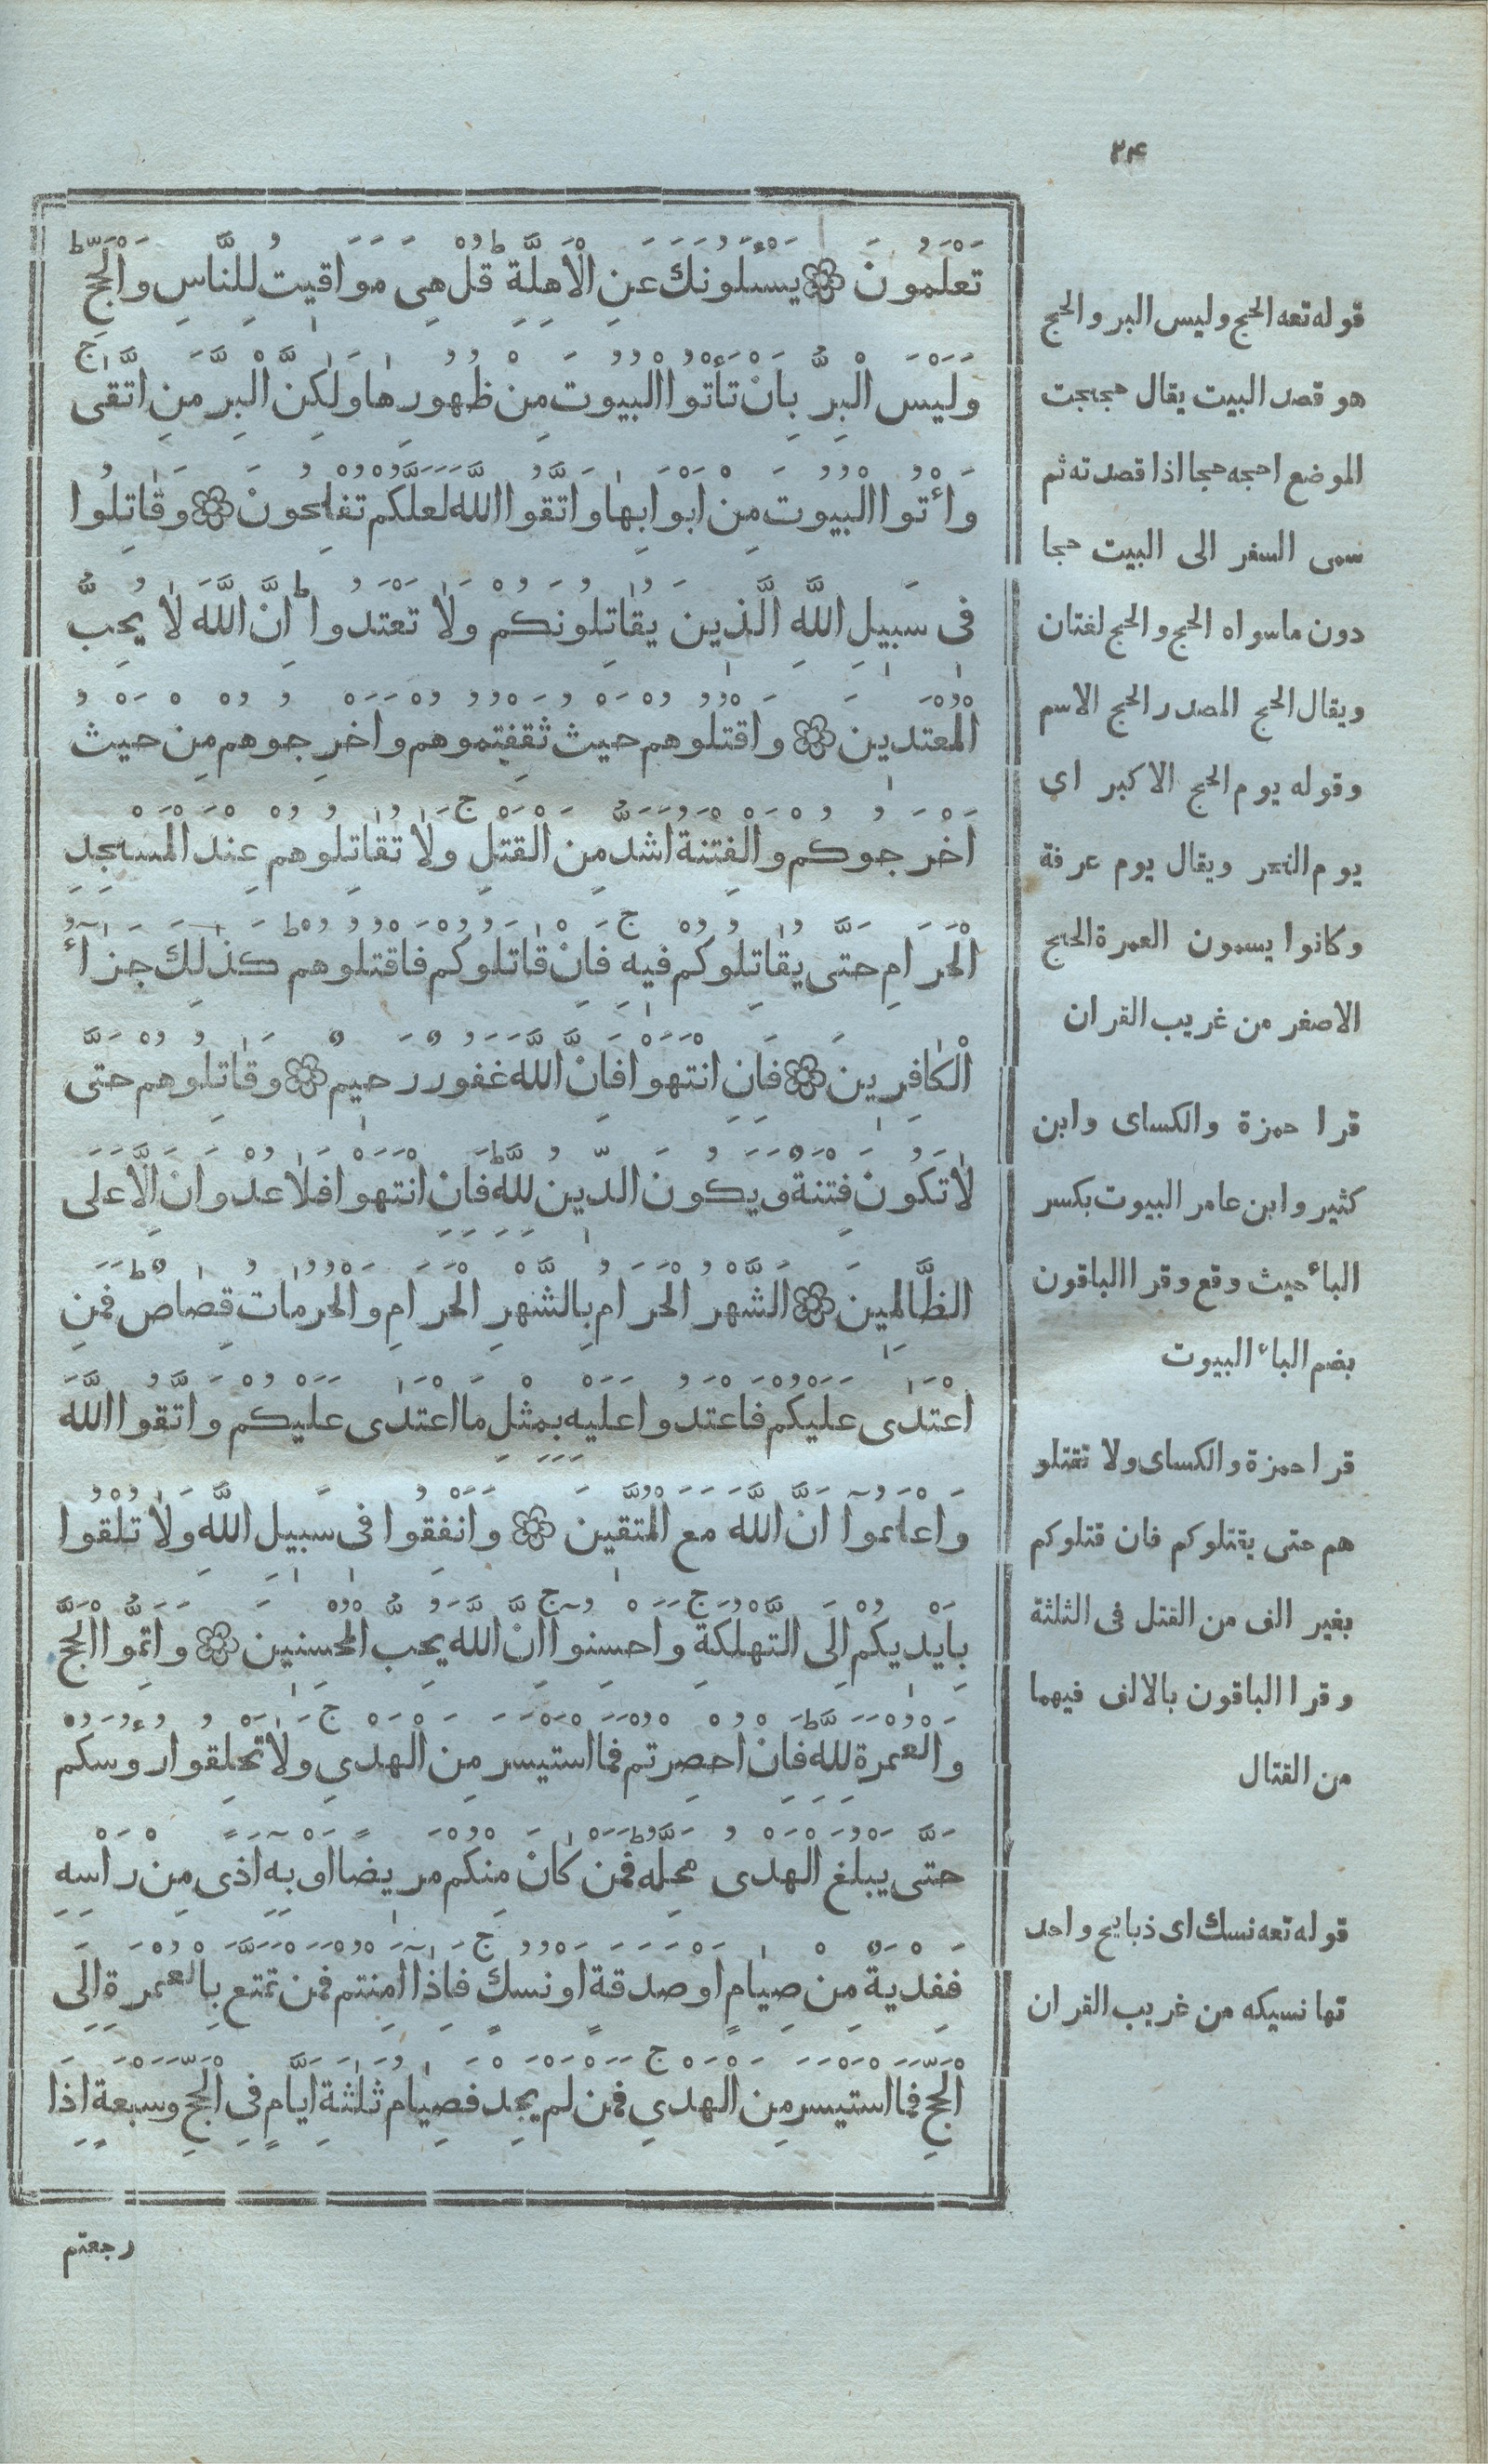 ٢٤
تَعْلَمُونَ ۞ يَسْـَٔلُونَكَ عَنِ الْاَهِلَّةِ ط قُلْ هِىَ مَوَاقِيتُ لِلنَّاسِ وَالْحَجِّ ط
وَلَيْسَ الْبِرُّ بِاَنْ تَأْتُوا الْبُيُوتَ مِنْ ظُهُورِهَا وَلٰكِنَّ الْبِرَّ مَنِ اتَّقٰى ج
وَأْتُوا الْبُيُوتَ مِنْ اَبْوَابِهَا وَاتَّقُوا اللَّهَ لَعَلَّكُمْ تُفْلِحُونْ ۞ وَقَاتِلُوا
فِى سَبِيلِ اللَّهِ الَّذِينَ يُقَاتِلُونَكُمْ وَلَا تَعْتَدُوا ط اِنَّ اللَّهَ لَا يُحِبُّ
الْمُعْتَدِينَ ۞ وَاقْتُلُوهُمْ حَيْثُ ثَقِفْتُمُوهُمْ وَاَخْرِجُوهُمْ مِنْ حَيْثُ
اَخْرَجُوكُمْ وَالْفِتْنَةُ اَشَدُّ مِنَ الْقَتْلِ ج وَلَا تُقَاتِلُوهُمْ عِنْدَ الْمَسْجِدِ
الْحَرَامِ حَتَّى يُقَاتِلُوكُمْ فِيهِ ج فَاِنْ قَاتَلُوكُمْ فَاقْتُلُوهُمْ ط كَذٰلِكَ جَزَآءُ
الْكَافِرِينَ ۞ فَاِنِ انْتَهَوْا فَاِنَّ اللَّهَ غَفُورٌ رَحِيمٌ ۞ وَقَاتِلُوهُمْ حَتَّى
لَا تَكُونَ فِتْنَةٌ وَيَكُونَ الدِّينُ لِلَّهِ ط فَاِنِ انْتَهَوْا فَلَا عُدْوَانَ اِلَّا عَلَى
الظَّالِمِينَ ۞ اَلشَّهْرُ الْحَرَامُ بِالشَّهْرِ الْحَرَامِ وَالْحُرُمَاتُ قِصَاصٌ ط فَمَنِ
اعْتَدٰى عَلَيْكُمْ فَاعْتَدُوا عَلَيْهِ بِمِثْلِ مَا اعْتَدٰى عَلَيْكُمْ وَاتَّقُوا اللَّهَ
وَاعْلَمُوآ اَنَّ اللَّهَ مَعَ الْمُتَّقِينَ ۞ وَاَنْفِقُوا فِى سَبِيلِ اللَّهِ وَلَا تُلْقُوا
بِاَيْدِيكُمْ اِلَى التَّهْلُكَةِ ج وَاَحْسِنُوآ ج اِنَّ اللَّهَ يُحِبُّ الْمُحْسِنِينَ ۞ وَاَتِمُّوا الْحَجَّ
وَالْعُمْرَةَ لِلَّهِ ط فَاِنْ اُحْصِرْتُمْ فَمَا اسْتَيْسَرَ مِنَ الْهَدْيِ ج وَلَا تَحْلِقُوا رُوسَكُمْ
حَتَّى يَبْلُغَ الْهَدْىُ مَحِلَّهُ ط فَمَنْ كَانَ مِنْكُمْ مَرِيضًا اَوْ بِهِٓ اَذًى مِنْ رَاْسِهِ
فَفِدْيَةٌ مِنْ صِيَامٍ اَوْ صَدَقَةٍ اَوْ نُسُكٍ ج فَاِذَآ اَمِنْتُمْ فَمَنْ تَمَتَّعَ بِالْعُمْرَةِ اِلَى
الْحَجِّ فَمَا اسْتَيْسَرَ مِنَ الْهَدْيِ ج فَمَنْ لَمْ يَجِدْ فَصِيَامُ ثَلٰثَةِ اَيَّامٍ فِى الْحَجِّ وَسَبْعَةٍ اِذَا
رجعتم
قوله تعه الحج وليس البر والحج
هو قصد البيت يقال حججت
الموضع احجه حجا اذا قصدته ثم
سمى السفر الى البيت حجا
دون ماسواه الحج والحج لغتان
ويقال الحج المصدر الحج الاسم
وقوله يوم الحج الاكبر اي
يوم النحر ويقال يوم عرفة
وكانوا يسمون العمرة الحج
الاصغر من غريب القران
قرا حمزة والكساى وابن
كثير وابن عامر البيوت بكسر
الباء حيث وقع وقرا الباقون
بضم الباء البيوت
قرا حمزة والكساى ولا تقتلو
هم حتى يقتلوكم فان قتلوكم
بغير الف من القتل فى الثلثة
وقرا الباقون بالالف فيهما
من القتال
قوله تعه نسك اى ذبايح واحد
تها نسيكه من غريب القران